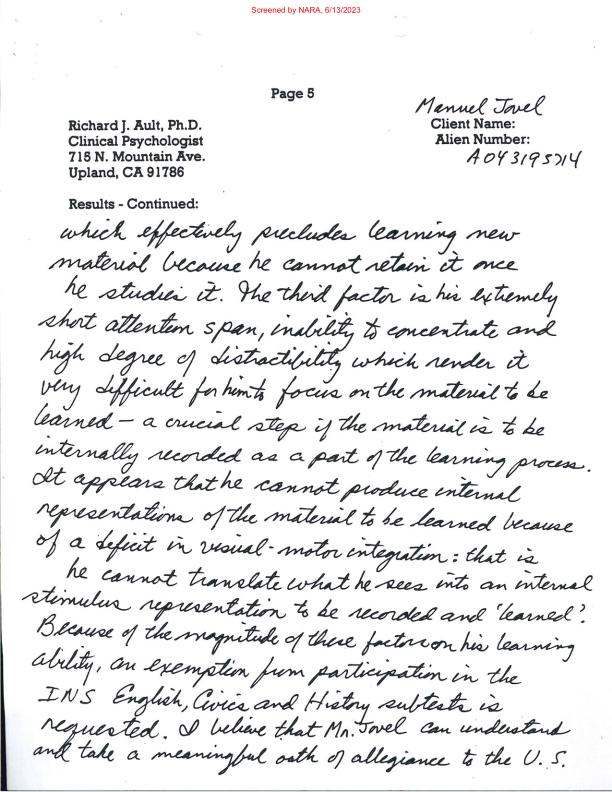 Screened by NARA, 6/13/2023
Page 5
Manuel Jovel
Richard J. Ault, Ph.D.
Client Name:
Clinical Psychologist
Alien Number:
715 N. Mountain Ave.
Upland, CA 91786
Results - Continued:
which effectively precludes learning new
material because he cannot retain it once
he studies it. The third factor is his extremely
short attention span, inability to concentrate and
high degree of distractibility which render it
very difficult for him to focus on the material to be
learned – a crucial step if the material is to be
internally recorded as a part of the learning process.
It appears that he cannot produce internal
representations of the material to be learned because
of a deficit in visual-motor integration: that is
he cannot translate what he sees into an internal
stimulus representation to be recorded and 'learned'.
Because of the magnitude of these factors on his learning
ability, an exemption from participation in the
INS English, Civics and History subtests is
requested. I believe that Mr. Jovel can understand
and take a meaningful oath of allegiance to the U.S.